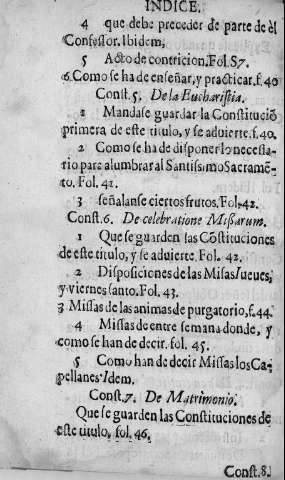 INDICE.
4 que debe preceder de parte de èl
Confessor. Ibidem,
5 Acto de contricion. Fol. 57.
6. Como se ha de enseñar, y practicar. f. 40
Const. 5. De la Eucharistia.
1 Mandase guardar la Constituciõ
primera de este titulo, y se advierte. f. 40.
2 Como se ha de disponer lo necessa-
rio para alumbrar al Santissimo Sacramẽ-
to. Fol. 42.
3 señalanse ciertos frutos. Fol. 42.
Const. 6. De celebratione Missarum.
1 Que se guarden las Cõstituciones
de este titulo, y se advierte. Fol. 42.
2 Disposiciones de las Misas Jueves,
y viernes santo. Fol. 43.
3 Missas de las animas de purgatorio, f. 44.
4 Missas de entre semana donde, y
como se han de decir. fol. 45.
5 Como han de decir Missas los Ca-
pellanes. Idem.
Const. 7. De Matrimonio.
Que se guarden las Constituciones de
este titulo, fol. 46.
Const. 8.